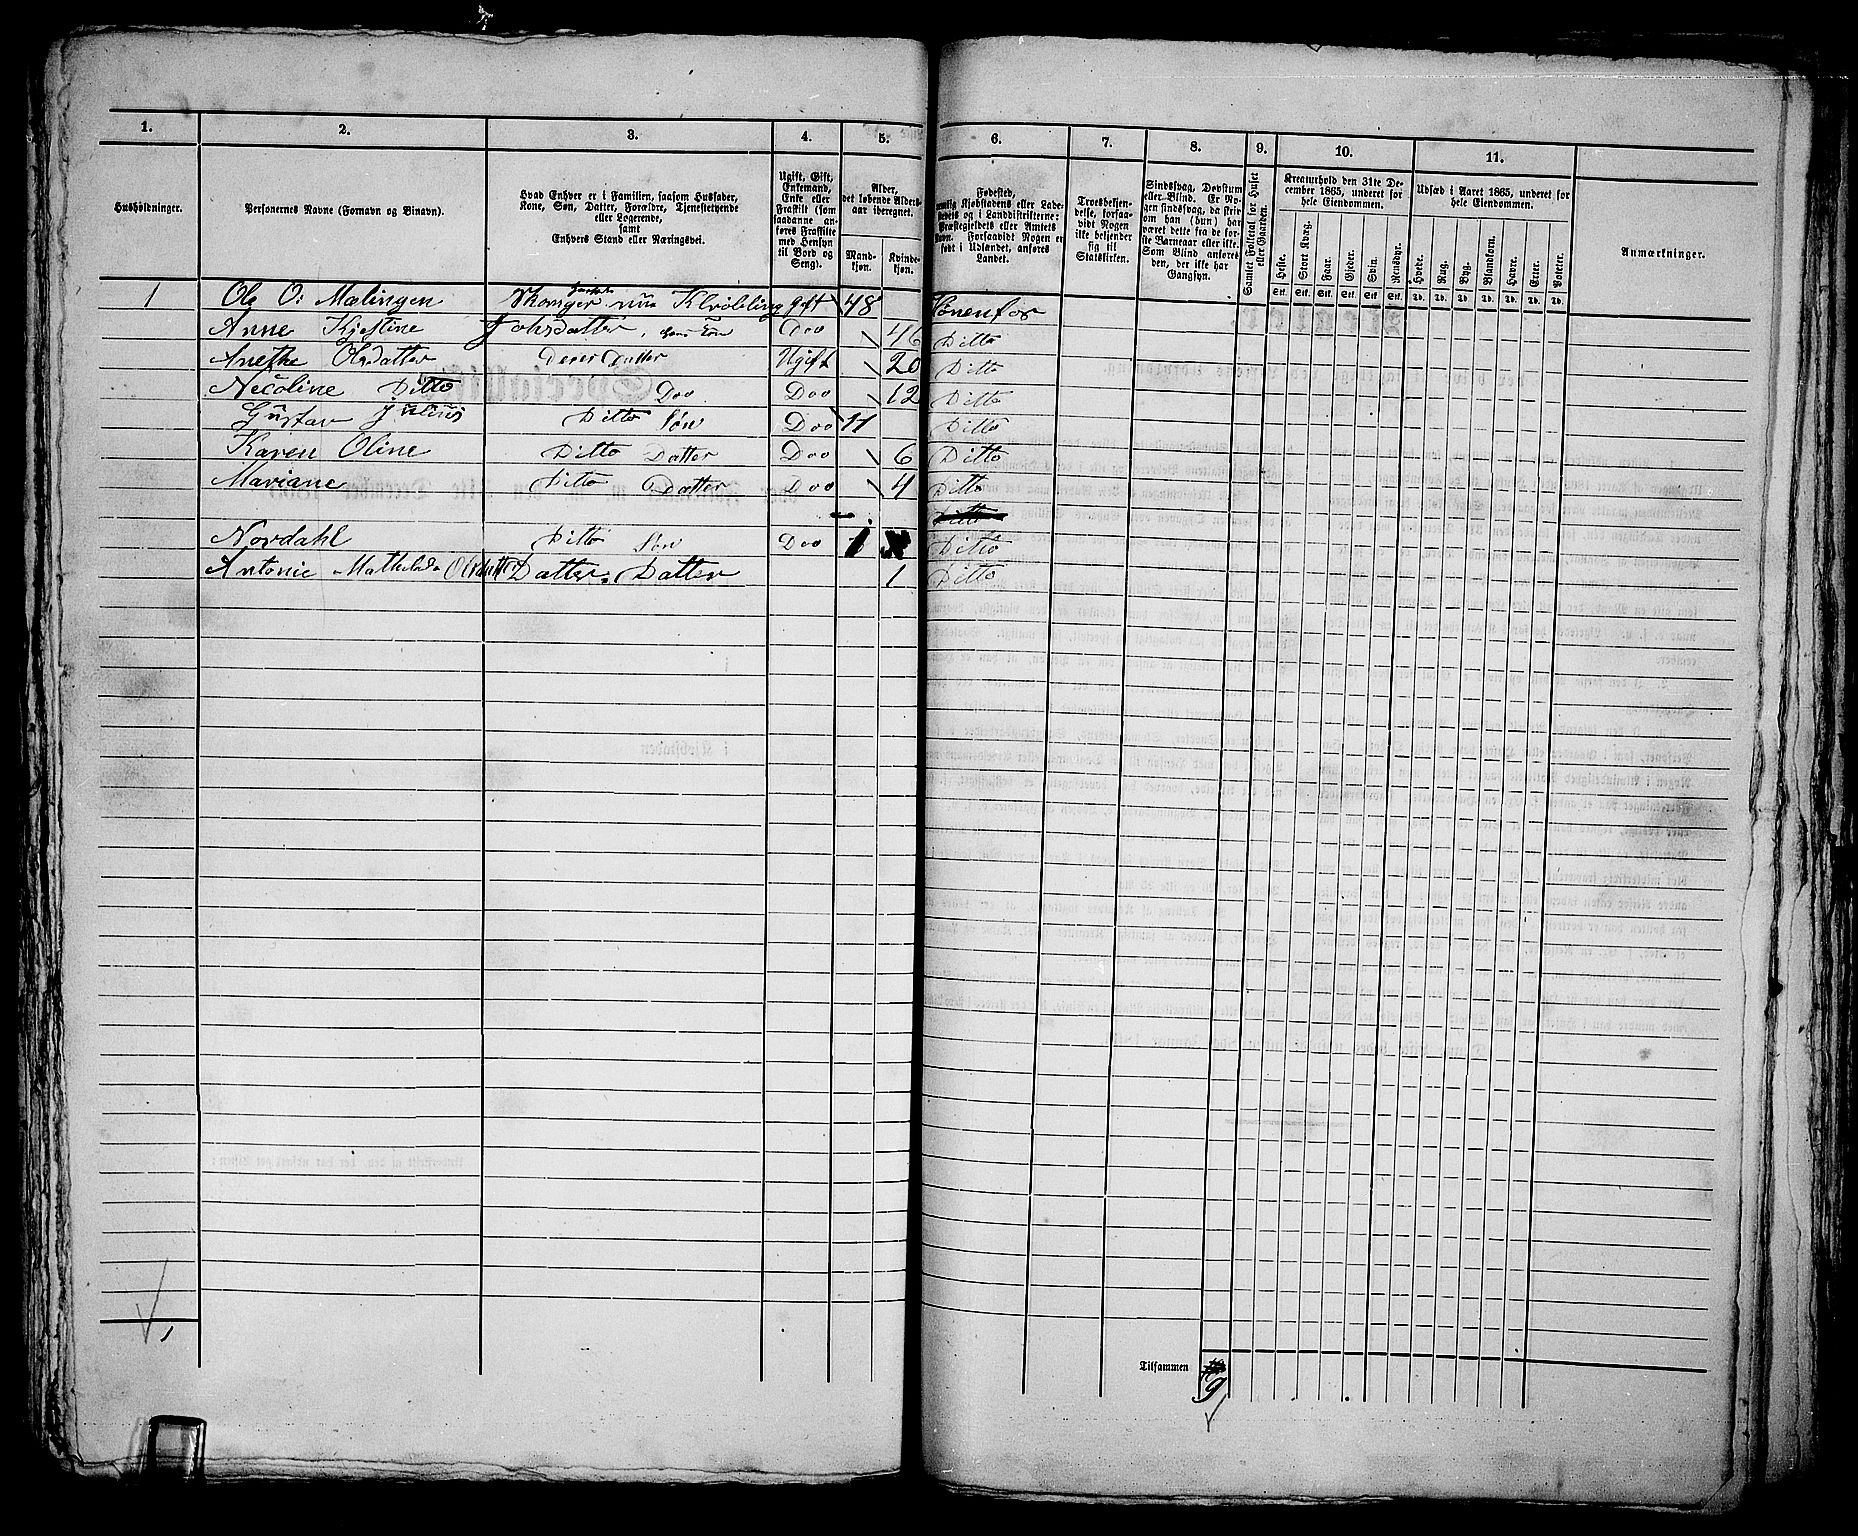 1. 2. 3. 4. 5. 6. 7. 8. 9. 10. 11.
Husholdninger.
Personernes Navne (Fornavn og Binavn).
Hvad Enhver er i Familien, saasom Husfader,
Kone, Søn, Datter, Forældre, Tjenestetyende
eller Logerende,
samt
Enhvers Stand eller Næringsvei.
Ugift, Gift,
Enkemand,
Enke eller
Fraskilt (som
saadanne an-
føres Fraskilte
med Hensyn
til Bord og
Seng).
Alder,
det løbende Alders-
aar iberegnet.
Mand-
kjøn.
Kvinde-
kjøn.
Fødested,
nemlig Kjøbstadens eller Lade-
stedets og i Landdistrikterne:
Præstegjeldets eller Amtets
Navn. Forsaavidt Nogen er
født i Udlandet, anføres
Landet.
Troesbekjen-
delse, forsaa-
vidt Nogen
ikke bekjender
sig til
Statskirken.
Sindssvag, Døvstum
eller Blind. Er No-
gen sindssvag, da skri-
ves om han (hun) har
været dette fra de før-
ste Barneaar eller ikke.
Som Blind anføres
den, der ikke har
Gangsyn.
Samlet Folketal for Huset
eller Gaarden.
Kreaturhold den 31te De-
cember 1865, underet for
hele Eiendommen.
Heste. Stort Kvæg. Faar. Gjeder. Svin. Rensdyr.
Stk. Stk. Stk. Stk. Stk. Stk.
Udsæd i Aaret 1865, underet for
hele Eiendommen.
Hvede. Rug. Byg. Blandkorn. Havre. Erter. Poteter.
Td. Td. Td. Td. Td. Td. Td.
Anmærkninger.
1 Ole O: Mælingen gift 48 Hønenfos
Anne Kjestine Johsdatter, hans Kone Do 46 Ditto
Anethe Olsdatter Deres Datter Ugift 20 Ditto
Nicoline Ditto Do Do 12 Ditto
Gustav Julius Ditto Søn Do 11 Ditto
Karen Oline Ditto Datter Do 6 Ditto
Mariane Ditto Datter Do 4 Ditto
Ditto
Nordahl Ditto Søn Do 1 Ditto
Antonie Mathilde Olsdatter Datters Datter 1 Ditto
Tilsammen 9